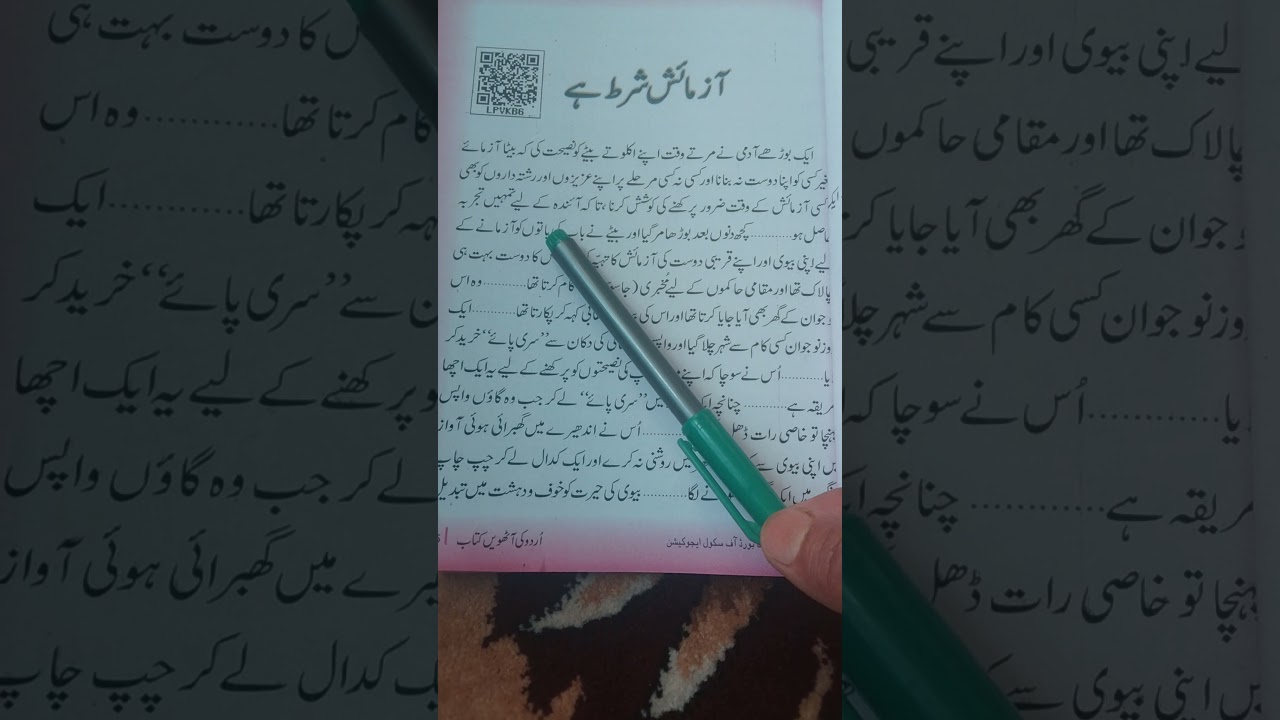 LPVKB6
آزمائش شرط ہے
ایک بوڑھے آدمی نے مرتے وقت اپنے اکلوتے بیٹے کو نصیحت کی کہ بیٹا آزمائے
بغیر کسی کو اپنا دوست نہ بنانا اور کسی نہ کسی مرحلے پر اپنے عزیزوں اور رشتہ داروں کو بھی
کسی آزمائش کے وقت ضرور پرکھنے کی کوشش کرنا، تاکہ آئندہ کے لیے تمہیں تجربہ
حاصل ہو............ کچھ دنوں بعد بوڑھا مر گیا اور بیٹے نے باتوں کو آزمانے کے
لیے اپنی بیوی اور اپنے قریبی دوست کی آزمائش کا تہیّہ کا دوست بہت ہی
چالاک تھا اور مقامی حاکموں کے لیے مُخبری ( کام کرتا تھا............ وہ اس
نوجوان کے گھر بھی آیا جایا کرتا تھا اور اس کی کہہ کر پکارتا تھا............ ایک
روز نوجوان کسی کام سے شہر چلا گیا اور واپس کی دکان سے ”سری پائے“ خرید کر
............ اُس نے سوچا کہ اپنے کی نصیحتوں کو پرکھنے کے لیے یہ ایک اچھا
طریقہ ہے............ چنانچہ ”سری پائے“ لے کر جب وہ گاؤں واپس
پہنچا تو خاصی رات ڈھل ............ اُس نے اندھیرے میں گھبرائی ہوئی آواز
میں اپنی بیوی سے روشنی نہ کرے اور ایک کدال لے کر چپ چاپ
میں لگا............ بیوی کی حیرت کو خوف و دہشت میں تبدیل
بورڈ آف سکول ایجوکیشن
اُردو کی آٹھویں کتاب